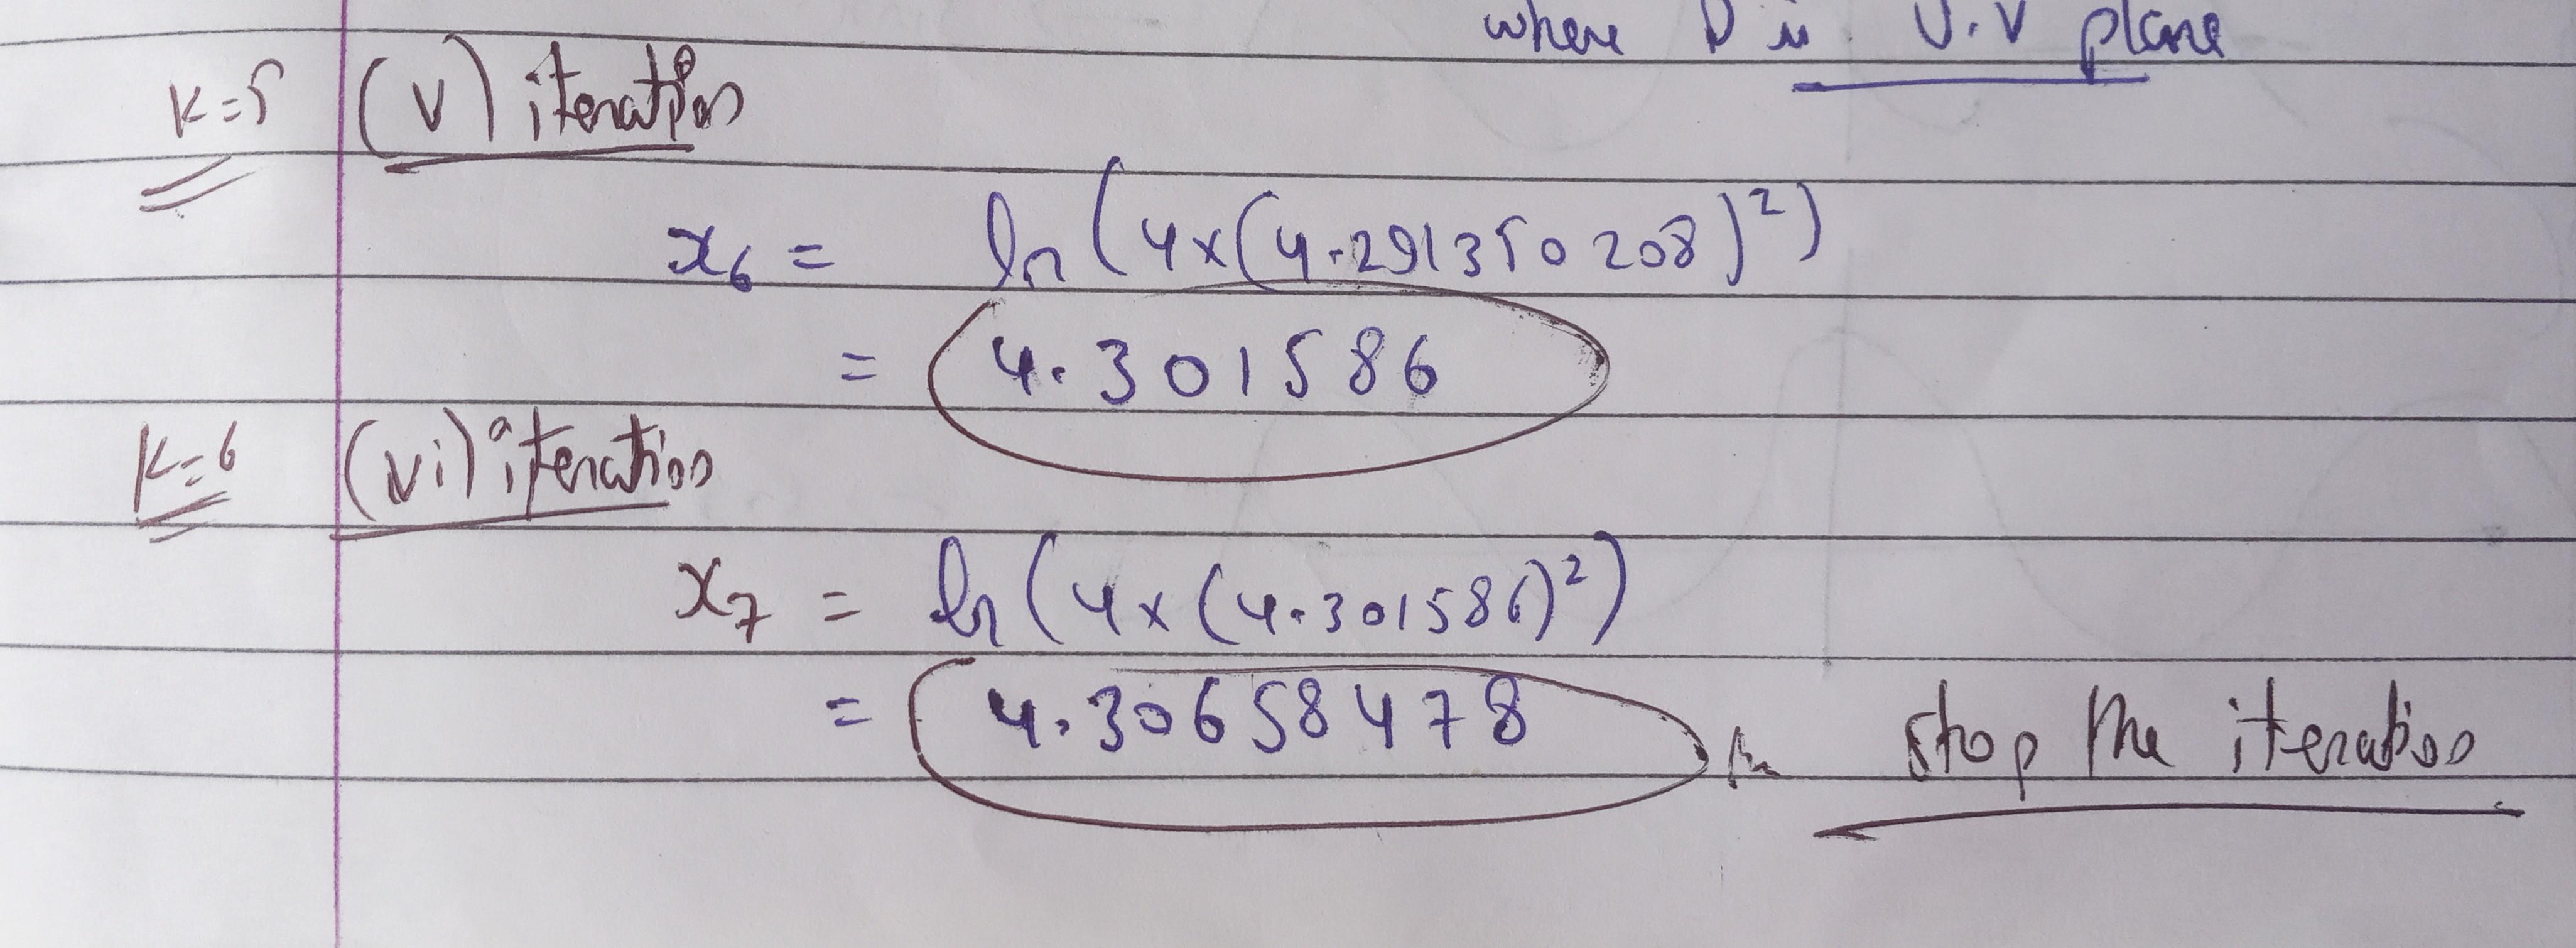 where D is U.V plane
K=5 (V) iteration
x₆ = ln(4×(4.291350208)²)
= 4.301586
K=6 (vi) iteration
x₇ = ln(4×(4.301586)²)
= 4.30658478 stop the iteration